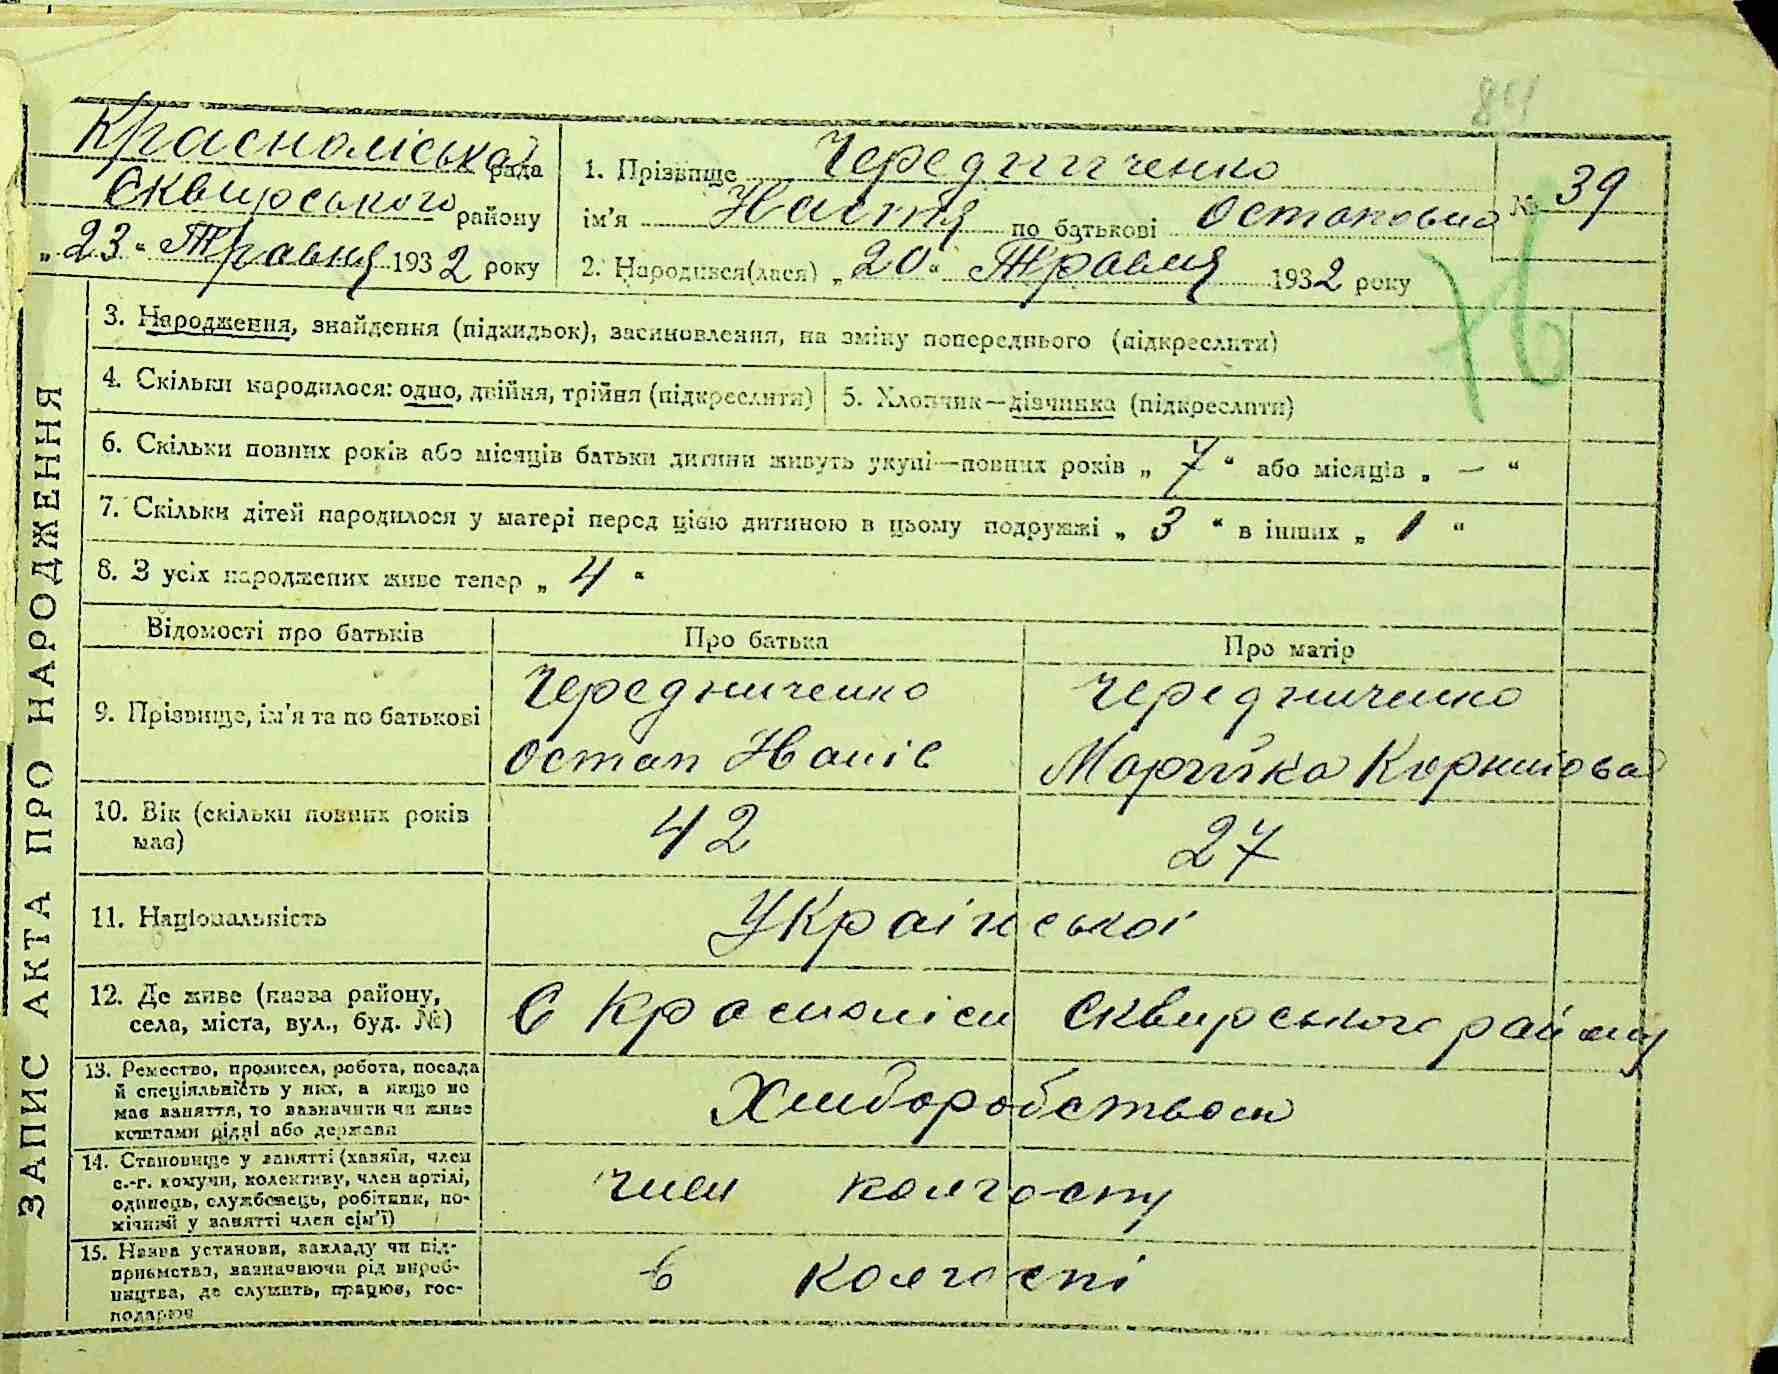 84
Красноліської рада
Сквирського району
„23“ Травня 1932 року
1. Прізвище Чередниченко
ім'я Настя по батькові Остаповна
№ 39
2. Народився(лася) „20“ Травня 1932 року
ЗАПИС АКТА ПРО НАРОДЖЕННЯ
3. Народження, знайдення (підкидьок), засиновлення, на зміну попереднього (підкреслити)
4. Скільки народилося: одно, двійня, трійня (підкреслити)
5. Хлопчик—дівчинка (підкреслити)
6. Скільки повних років або місяців батьки дитини живуть укупі—повних років „7“ або місяців „—“
7. Скільки дітей народилося у матері перед цією дитиною в цьому подружжі „3“ в інших „1“
8. З усіх народжених живе тепер „4“
Відомості про батьків
Про батька
Про матір
9. Прізвище, ім'я та по батькові
Чередниченко
Остап
Чередниченко
Марийка
10. Вік (скільки повних років
має)
42
27
11. Національність
Української
12. Де живе (назва району,
села, міста, вул., буд. №)
с Краснолісн Сквирського району
13. Ремество, промисел, робота, посада
й спеціяльність у них, а якщо не
має заняття, то зазначити чи живе
коштами рідні або держави
Хлиборобством
14. Становище у занятті (хазяїн, член
с.-г. комуни, колективу, член артілі,
одинець, службовець, робітник, по-
мічний у занятті член сім'ї)
член колгоспу
15. Назва установи, закладу чи під-
приємства, зазначаючи рід вироб-
ництва, де служить, працює, гос-
подарює
в колгоспі